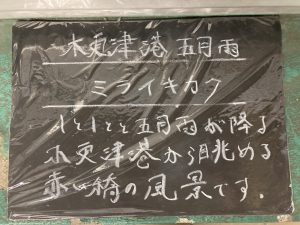 木更津港 五月雨
ミライキカク
しとしとと五月雨が降る
木更津港から眺める
赤い橋の風景です.